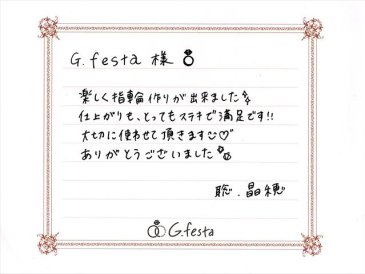 G.festa 様
楽しく指輪作りが出来ました
仕上がりも、とってもステキで満足です!!
大切に使わせて頂きます
ありがとうございました
聡・晶穂
G.festa